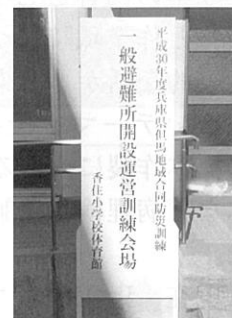 平成30年度兵庫県但馬地域合同防災訓練
一般避難所開設運営訓練会場
香住小学校体育館